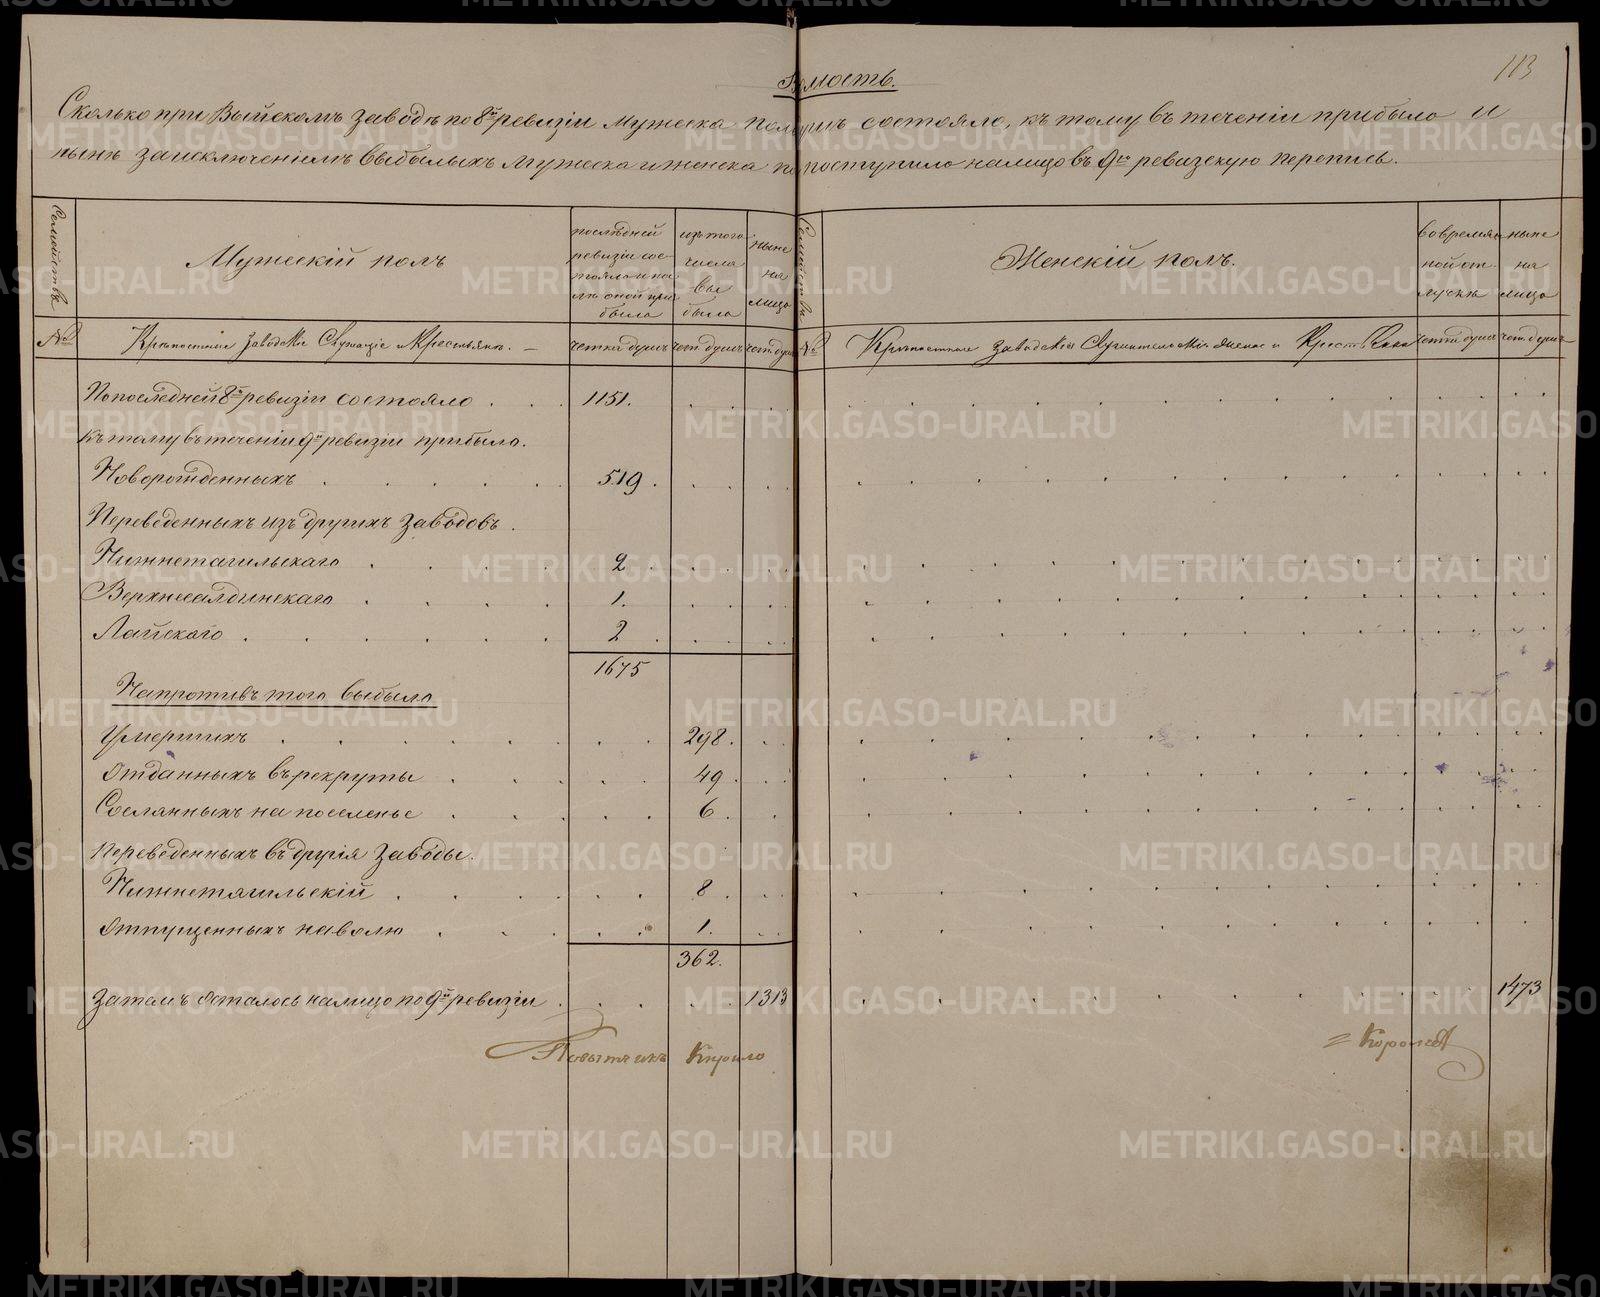 113
Вѣдомость.
Сколько при Выйскомъ заводѣ по 8й ревизіи мужеска пола душъ состояло, къ тому въ теченіи прибыло и
нынѣ за исключеніемъ выбылыхъ мужеска и женска поступило на лицо въ 9ю ревизскую перепись.
Семействъ
Мужескій полъ
послѣдней ревизіи состояло и послѣ оной прибыло
изъ того числа выбыло
ныне на лицо
Семействъ
Женскій полъ.
во временной отлучкѣ
ныне на лицо
№
Крѣпостные Заводскіе Служащіе и Крестьяне.
чет. душ.
чет. душ.
№
Крѣпостные Заводскія и Крестьянки
чет. душ.
По последней 8й ревизіи состояло . . . 1151.
къ тому въ теченіи 9й ревизіи прибыло.
Новорожденныхъ . . . . . 519.
Переведенныхъ изъ другихъ Заводовъ.
Нижнетагильскаго . . . . 2
Верхнесалдинскаго . . . . 1.
Лайскаго . . . . . 2
1675
Напротивъ того выбыло
Умершихъ . . . . . 298.
Отданныхъ въ рекруты . . . . 49.
Сосланныхъ на поселенье . . . . 6.
Переведенныхъ въ другія Заводы.
Нижнетагильскій . . . . 8.
Отпущенныхъ на волю . . . . 1.
362.
Затемъ осталось на лицо по 9й ревизіи . . . . 1313 . . . . 1473
Повытчикъ Кирило Королев
METRIKI.GASO-URAL.RU